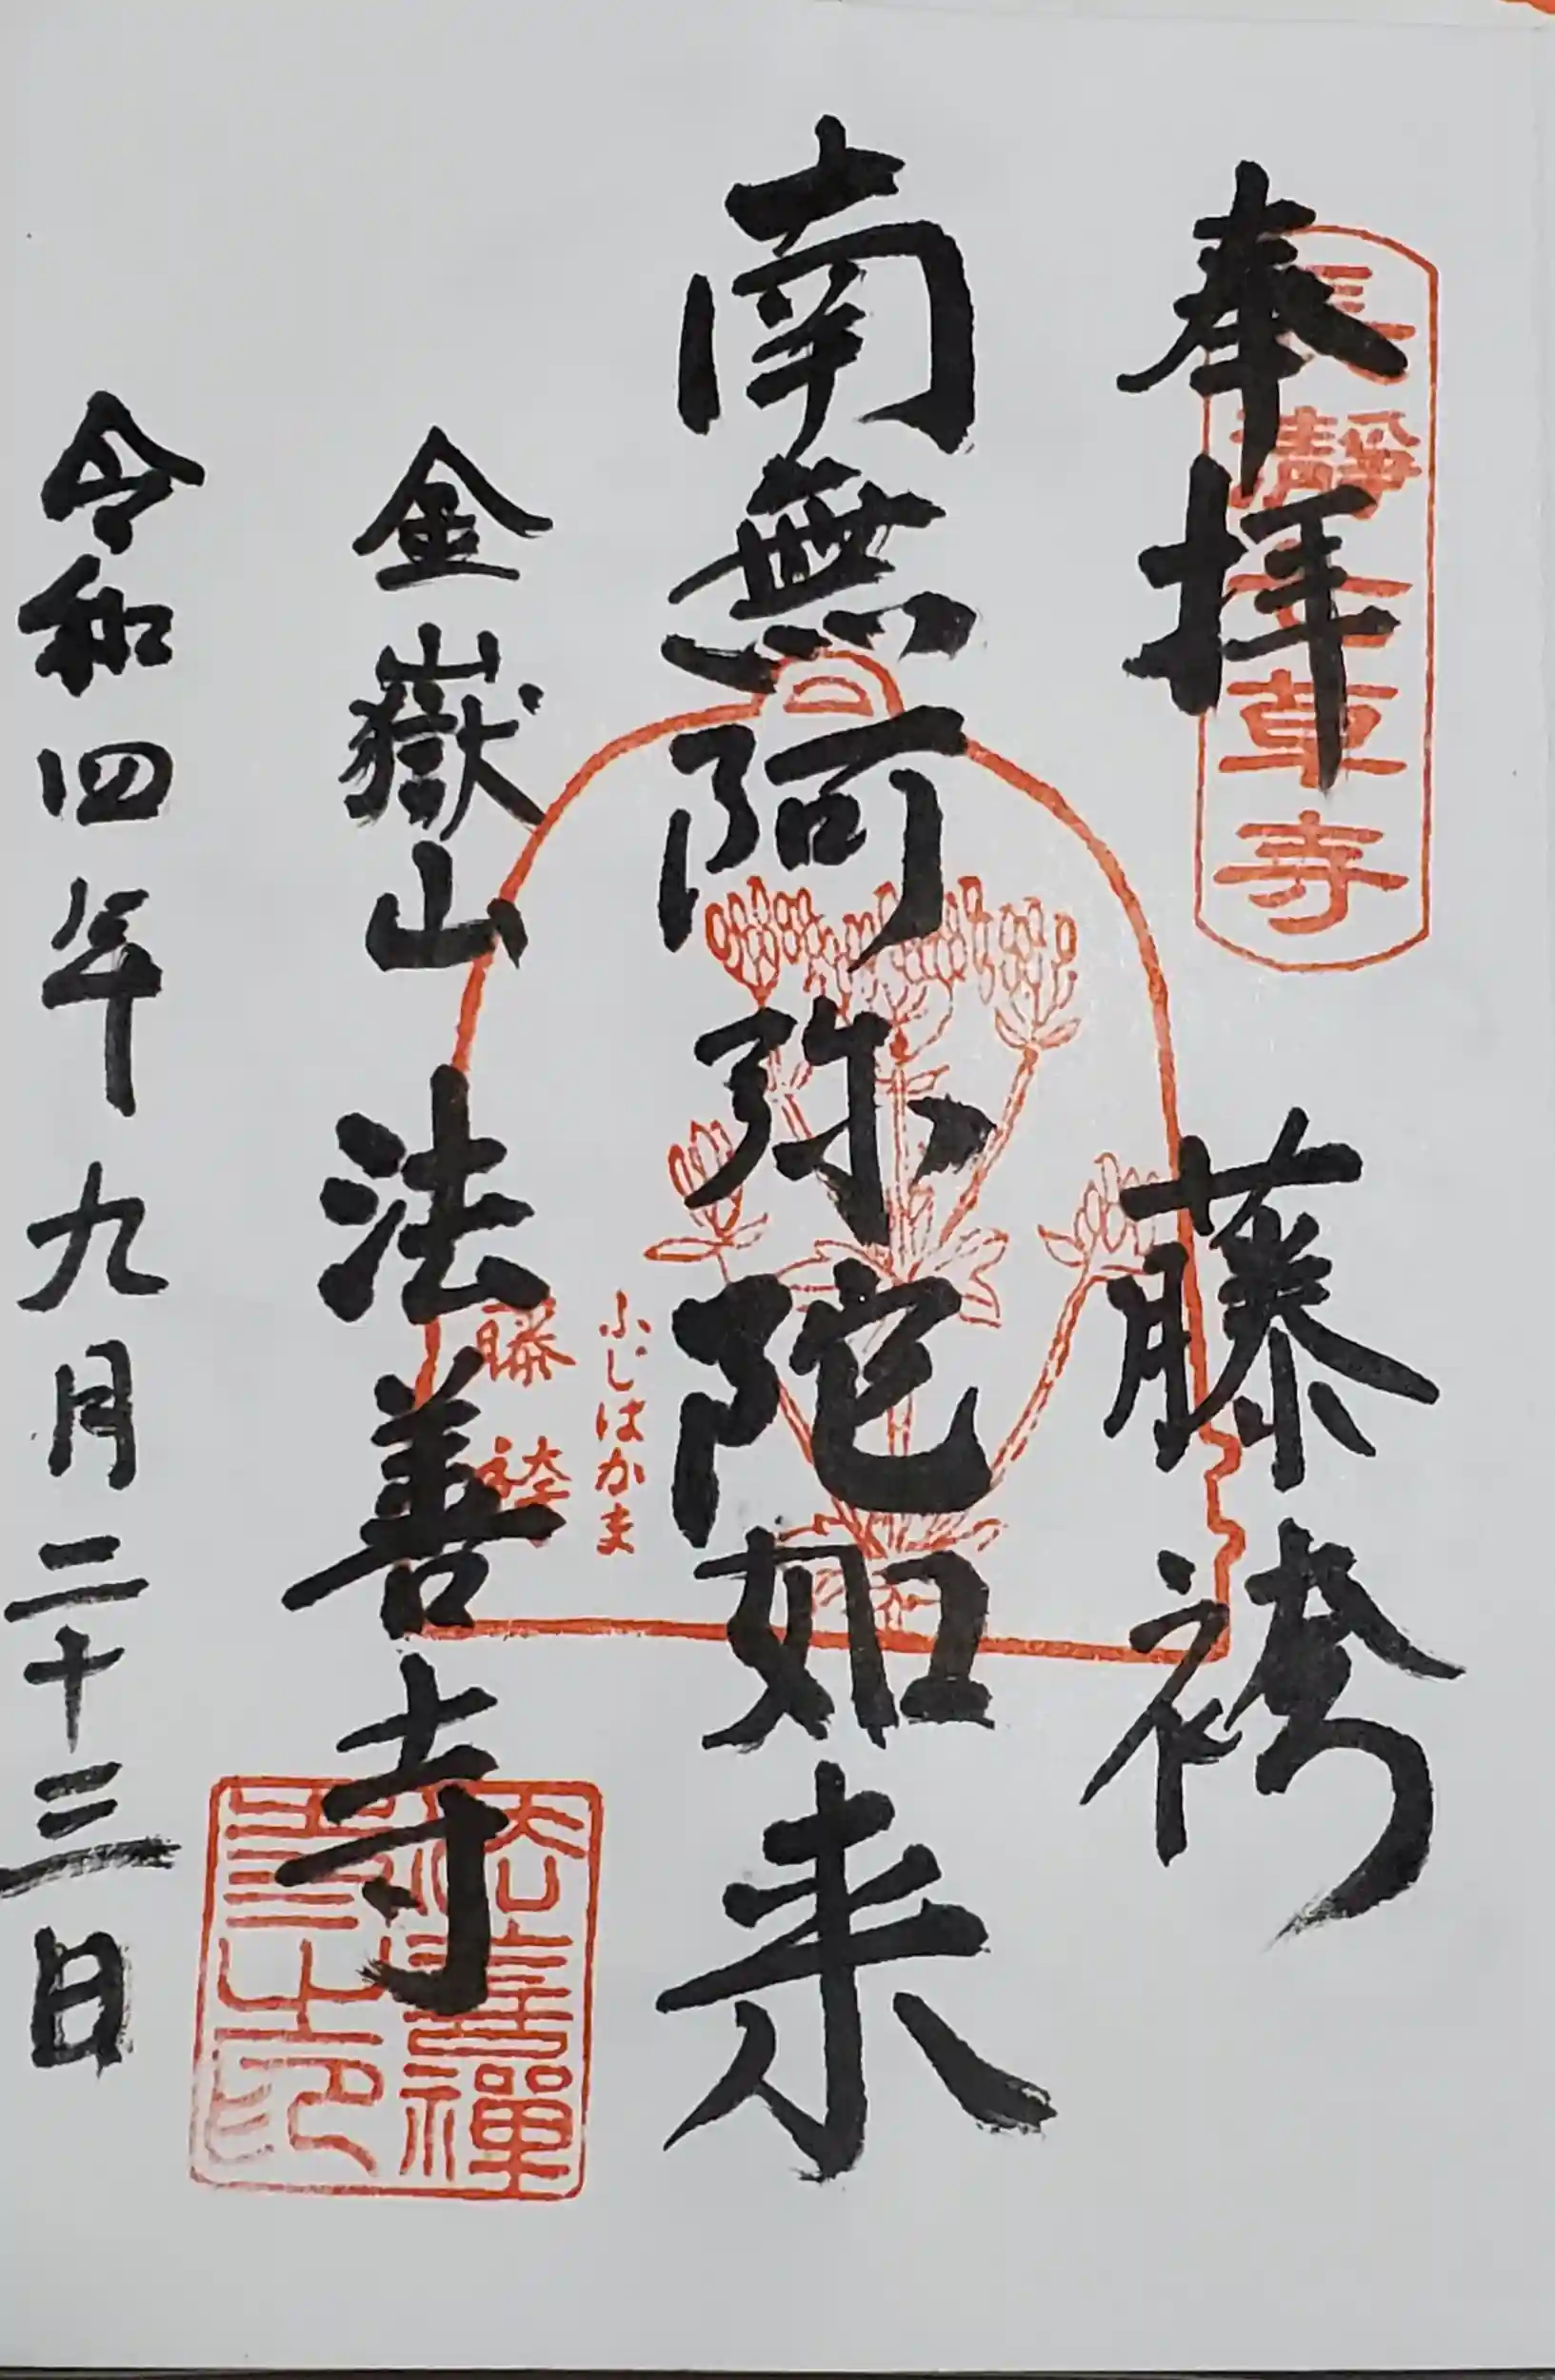 奉拝 藤袴
長瀞七草寺
南無阿弥陀如来
ふじはかま
藤袴
金嶽山 法善寺
法善禅寺之印
令和四年九月二十三日